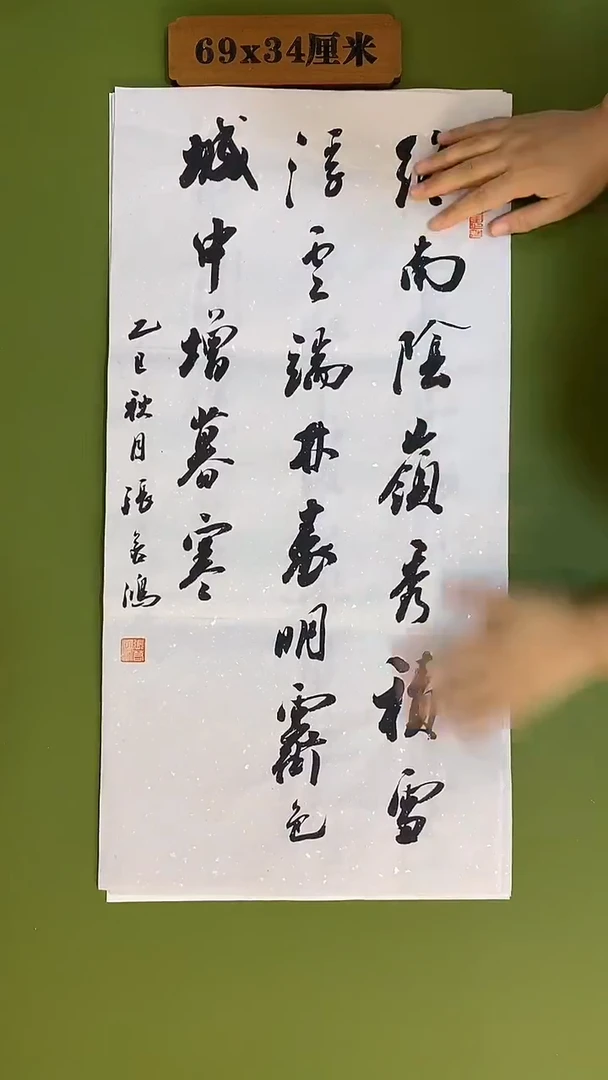 69x34厘米
終南陰嶺秀積雪
浮雲端林表明霽色
城中增暮寒
乙巳秋月張鴻